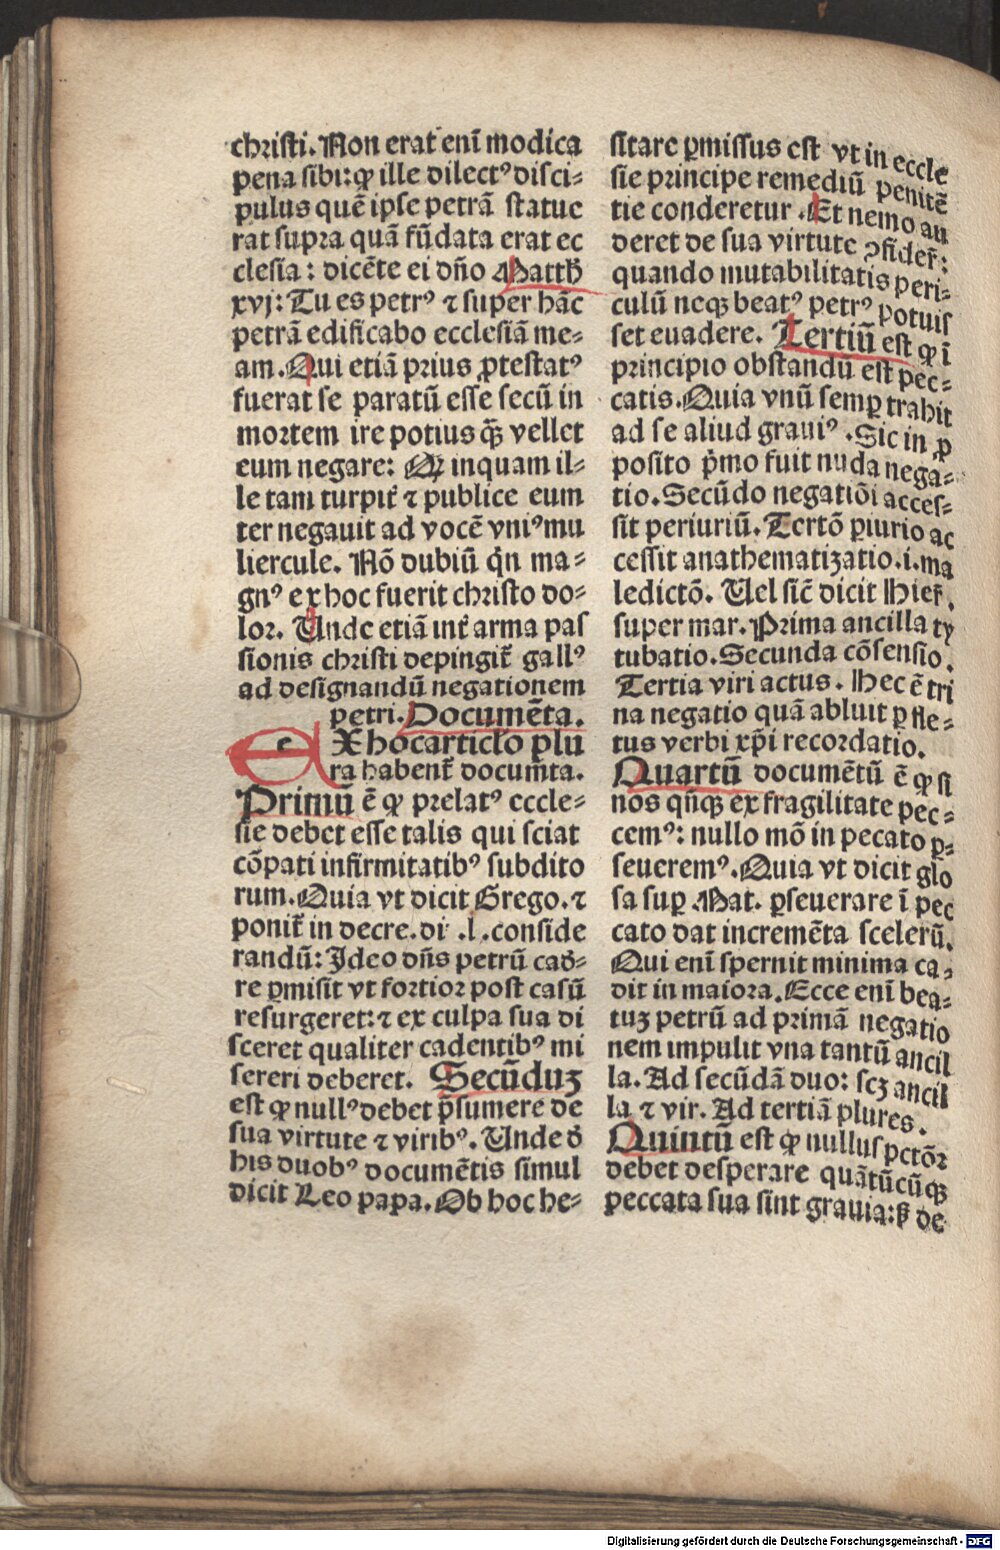 christi. Non erat enī modica
pena sibi: ꝙ ille dilectꝰ disci-
pulus quē ipse petrā statue
rat supra quā fūdata erat ec
clesia: dicēte ei dn̄o Matth̄
xvj: Tu es petrꝰ ⁊ super hāc
petrā edificabo ecclesiā me-
am. Qui etiā prius ꝓtestatꝰ
fuerat se paratū esse secū in
mortem ire potius qꝫ̄ vellet
eum negare: Q inquam il-
le tam turpit̄ ⁊ publice eum
ter negauit ad vocē vniꝰ mu
liercule. Nō dubiū qn̄ ma-
gnꝰ ex hoc fuerit christo do-
lor. Unde etiā int̄ arma pas
sionis christi depingit̄ gallꝰ
ad designandū negationem
petri. Documēta.
EX hoc articlo plu
ra habent̄ documt̄a.
Primū ē ꝙ prelatꝰ eccle-
sie debet esse talis qui sciat
cōpati infirmitatibꝰ subdito
rum. Quia vt dicit Grego. ⁊
ponit̄ in decre. di .l. conside
randū: Ideo dn̄s petrū cad-
re ꝑmisit vt fortior post casū
resurgeret: ⁊ ex culpa sua di
sceret qualiter cadentibꝰ mi
sereri deberet. Secūduꝫ
est ꝙ nullꝰ debet p̄sumere de
sua virtute ⁊ viribꝰ. Unde d̄
his duobꝰ documētis simul
dicit Leo papa. Ob hoc he-
sitare ꝑmissus est vt in eccle
sie principe remediū penitē
tie conderetur. Et nemo au
deret de sua virtute ꝯfider̄:
quando mutabilitatis peri-
culū neqꝫ beatꝰ petrꝰ potuis
set euadere. Tertiū est ꝙ ī
principio obstandū est pec-
catis. Quia vnū semꝑ trahit
ad se aliud grauiꝰ. Sic in ꝓ
posito p̄mo fuit nuda nega-
tio. Secūdo negatiōi acces-
sit periuriū. Tertō ꝑiurio ac
cessit anathematiꝫatio .i. ma
ledictō. Uel sic̄ dicit Hier̄.
super mar. Prima ancilla ty
tubatio. Secunda cōsensio.
Tertia viri actus. Hec ē tri
na negatio quā abluit ꝑ fle-
tus verbi xp̄i recordatio.
Quartū documētū ē ꝙ si
nos qn̄qꝫ ex fragilitate pec-
cemꝰ: nullo mō in pecato ꝑ-
seueremꝰ. Quia vt dicit glo
sa suꝑ Mat. ꝑseuerare ī pec
cato dat incremēta scelerū.
Qui enī spernit minima ca-
dit in maiora. Ecce enī bea-
tuꝫ petrū ad primā negatio
nem impulit vna tantū ancil
la. Ad secūdā duo: scꝫ ancil
la ⁊ vir. Ad tertiā plures.
Quintū est ꝙ nullus pctōꝝ
debet desperare quātūcūqꝫ
peccata sua sint grauia: ꝫ̄ de
Digitalisierung gefördert durch die Deutsche Forschungsgemeinschaft - DFG